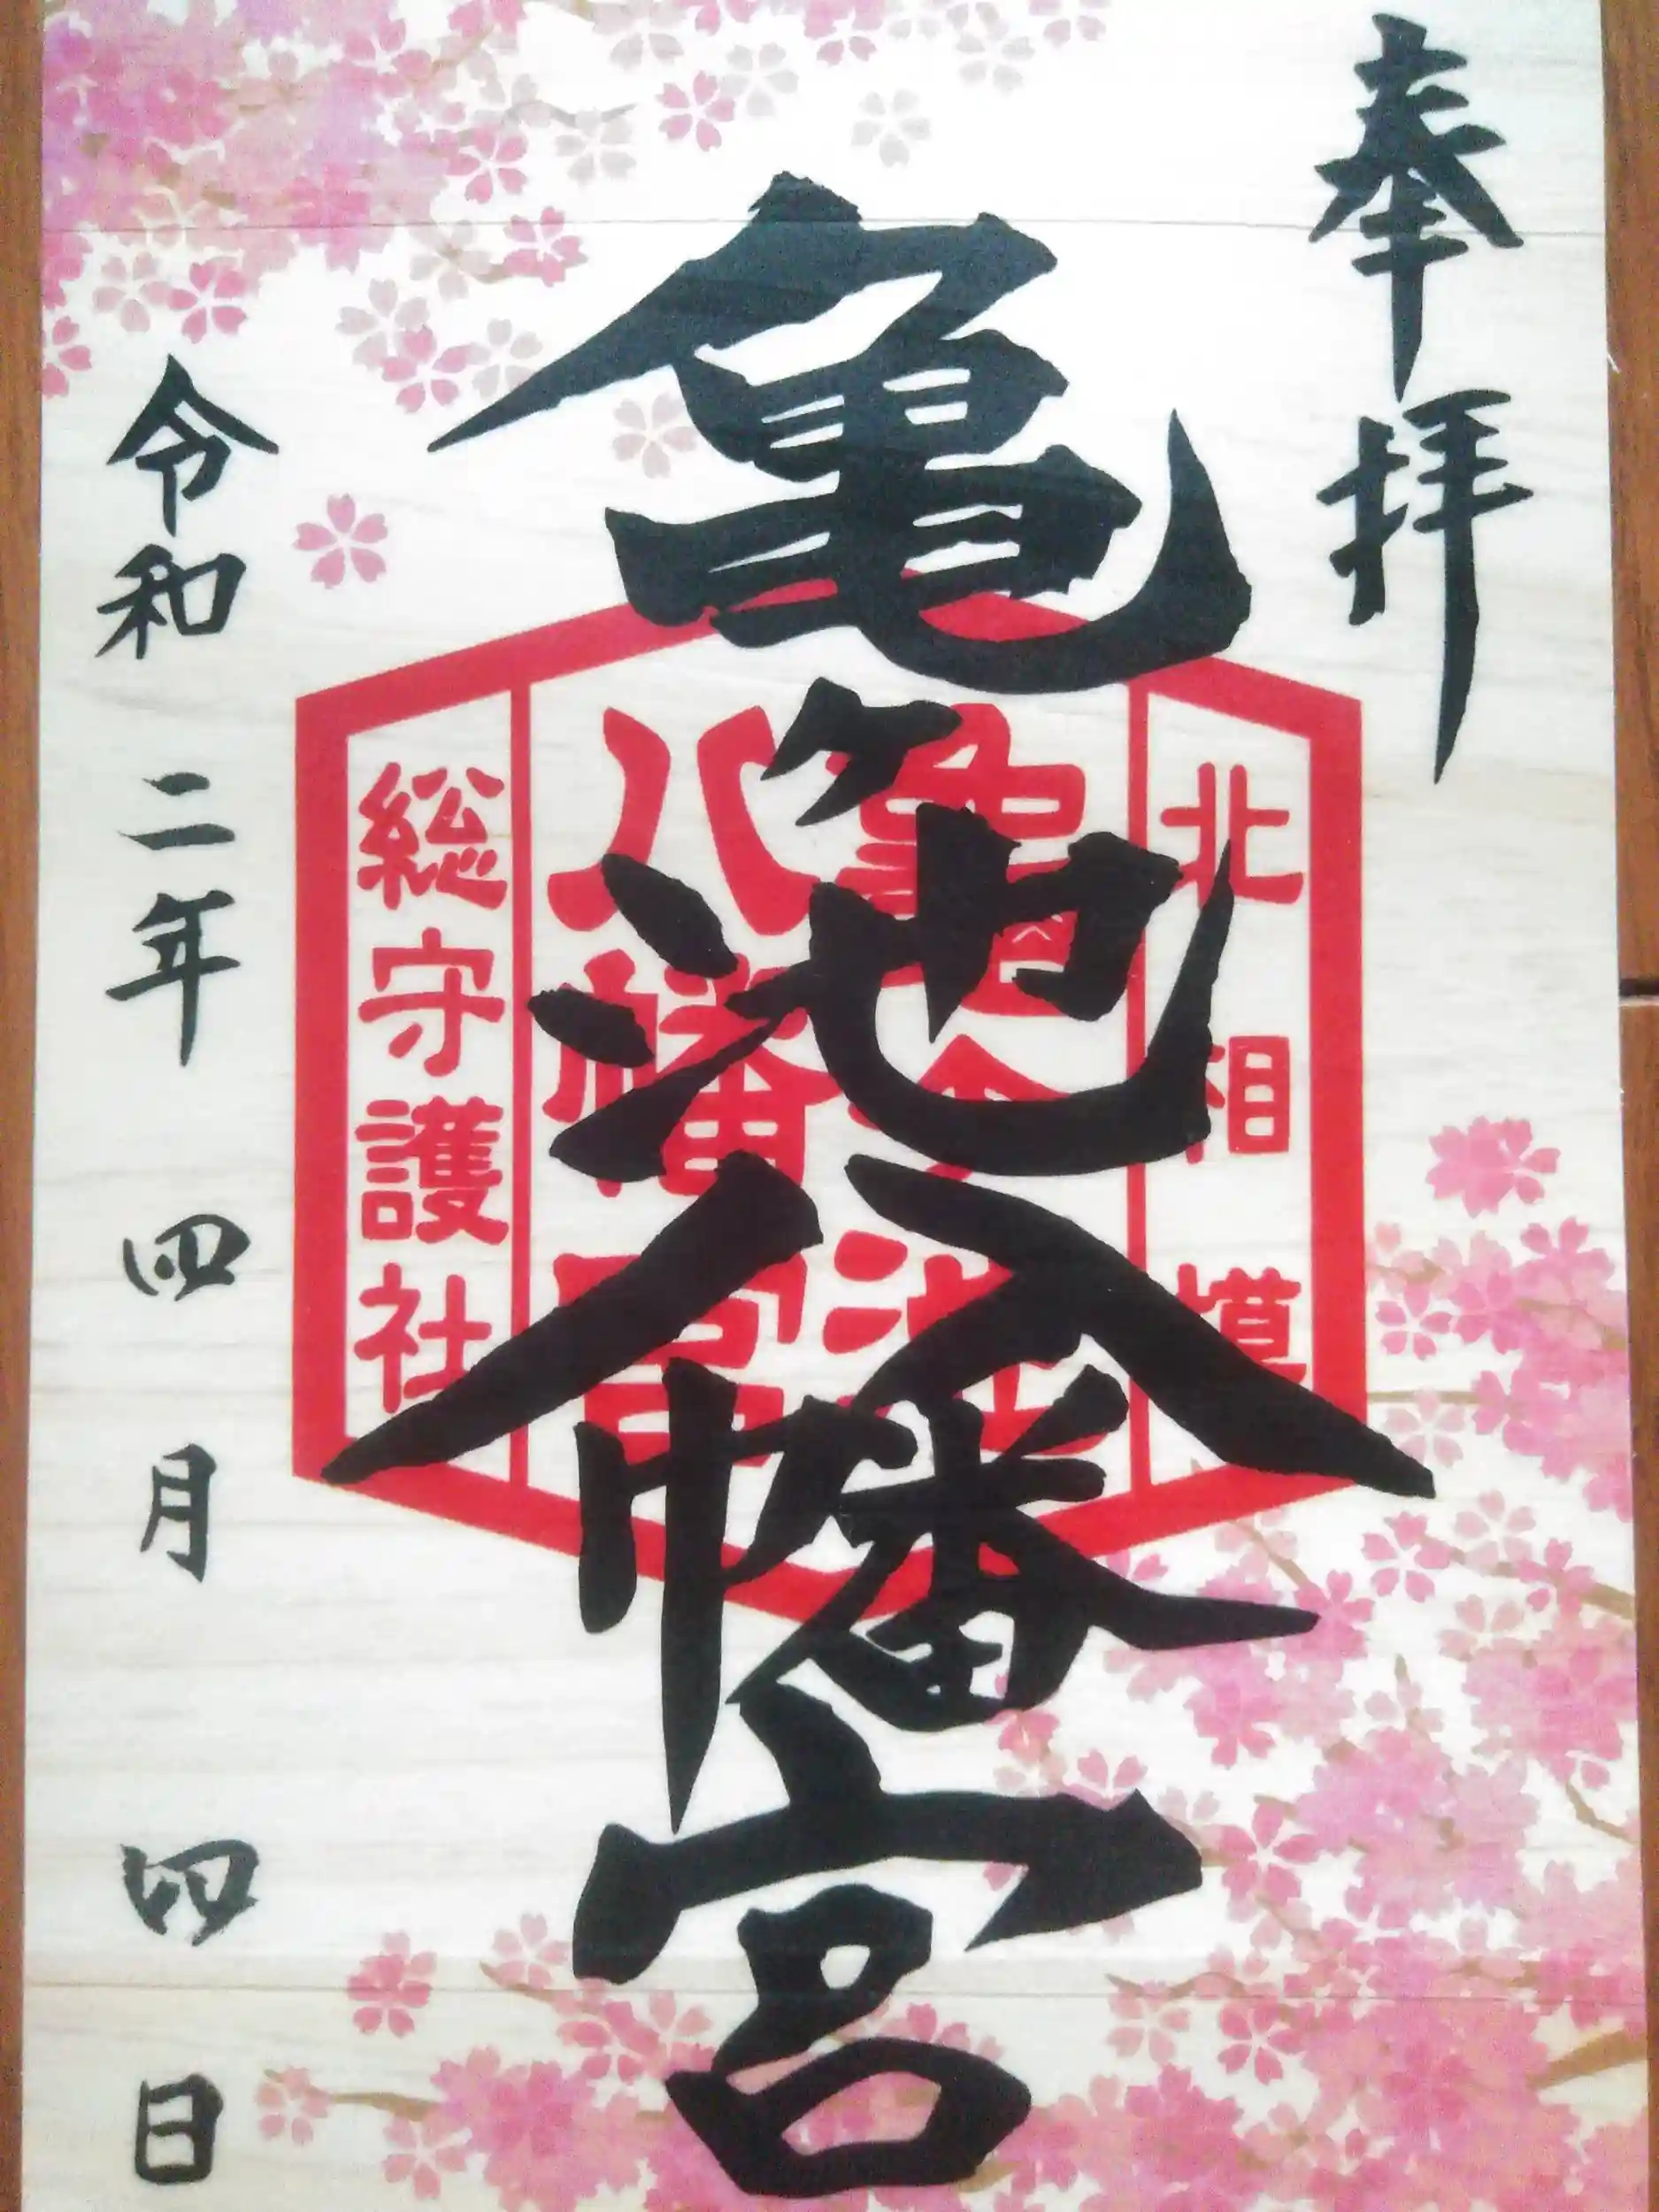 奉拝
亀ヶ池八幡宮
北相模
亀ヶ池
八幡宮
総守護社
令和二年四月四日